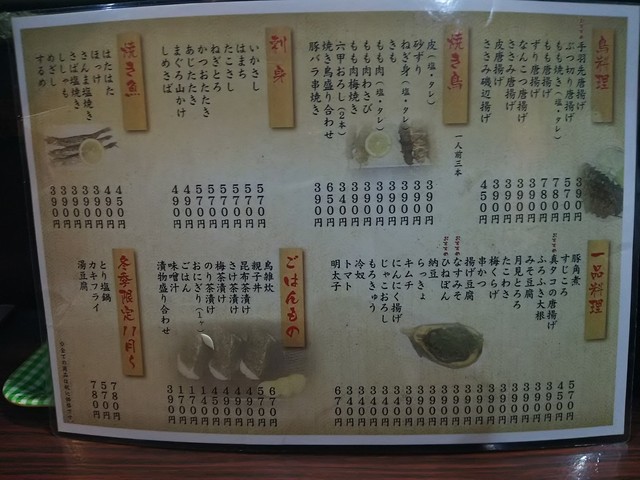 鳥料理
おすすめ 手羽先唐揚げ 390円
ぶつ切り唐揚げ 570円
もも焼き(塩・タレ) 780円
もも唐揚げ 780円
ずり唐揚げ 390円
なんこつ唐揚げ 390円
ささみ唐揚げ 390円
皮唐揚げ 390円
ささみ磯辺揚げ 450円
焼き鳥
一人前三本
皮(塩・タレ) 390円
砂ずり 390円
ねぎ身(塩・タレ) 390円
きも(塩・タレ) 390円
もも肉(塩・タレ) 390円
もも肉わさび 390円
もも肉梅焼き 390円
六甲おろし(2本) 340円
焼き鳥盛り合わせ 650円
豚バラ串焼き 390円
刺身
いかさし 570円
はまち 570円
たこさし 570円
ねぎとろ 570円
かつおたたき 570円
あじたたき 570円
まぐろ山かけ 490円
しめさば 490円
焼き魚
はたはた 450円
ほっけ 490円
さんま塩焼き 390円
さば塩焼き 390円
ししゃも 390円
めざし 390円
するめ 390円
一品料理
豚角煮 570円
すじころ 450円
おすすめ 真タコの唐揚げ
ふろふき大根
みそ豆腐
月見とろろ
たこわさ
梅くらげ
串かつ
揚げ豆腐
おすすめ なすみそ
おすすめ ひねぽん
納豆
らっきょ
キムチ
にんにく揚げ
じゃこおろし
もろきゅう
冷奴
トマト 340円
明太子 670円
ごはんもの
鳥雑炊 670円
親子丼 570円
昆布茶漬け 490円
さけ茶漬け 490円
梅茶漬け 490円
のり茶漬け 450円
おにぎり(1ヶ) 140円
ごはん 170円
味噌汁 170円
漬物盛り合わせ 390円
冬季限定 11月〜
とり塩鍋 780円
カキフライ 570円
湯豆腐 780円